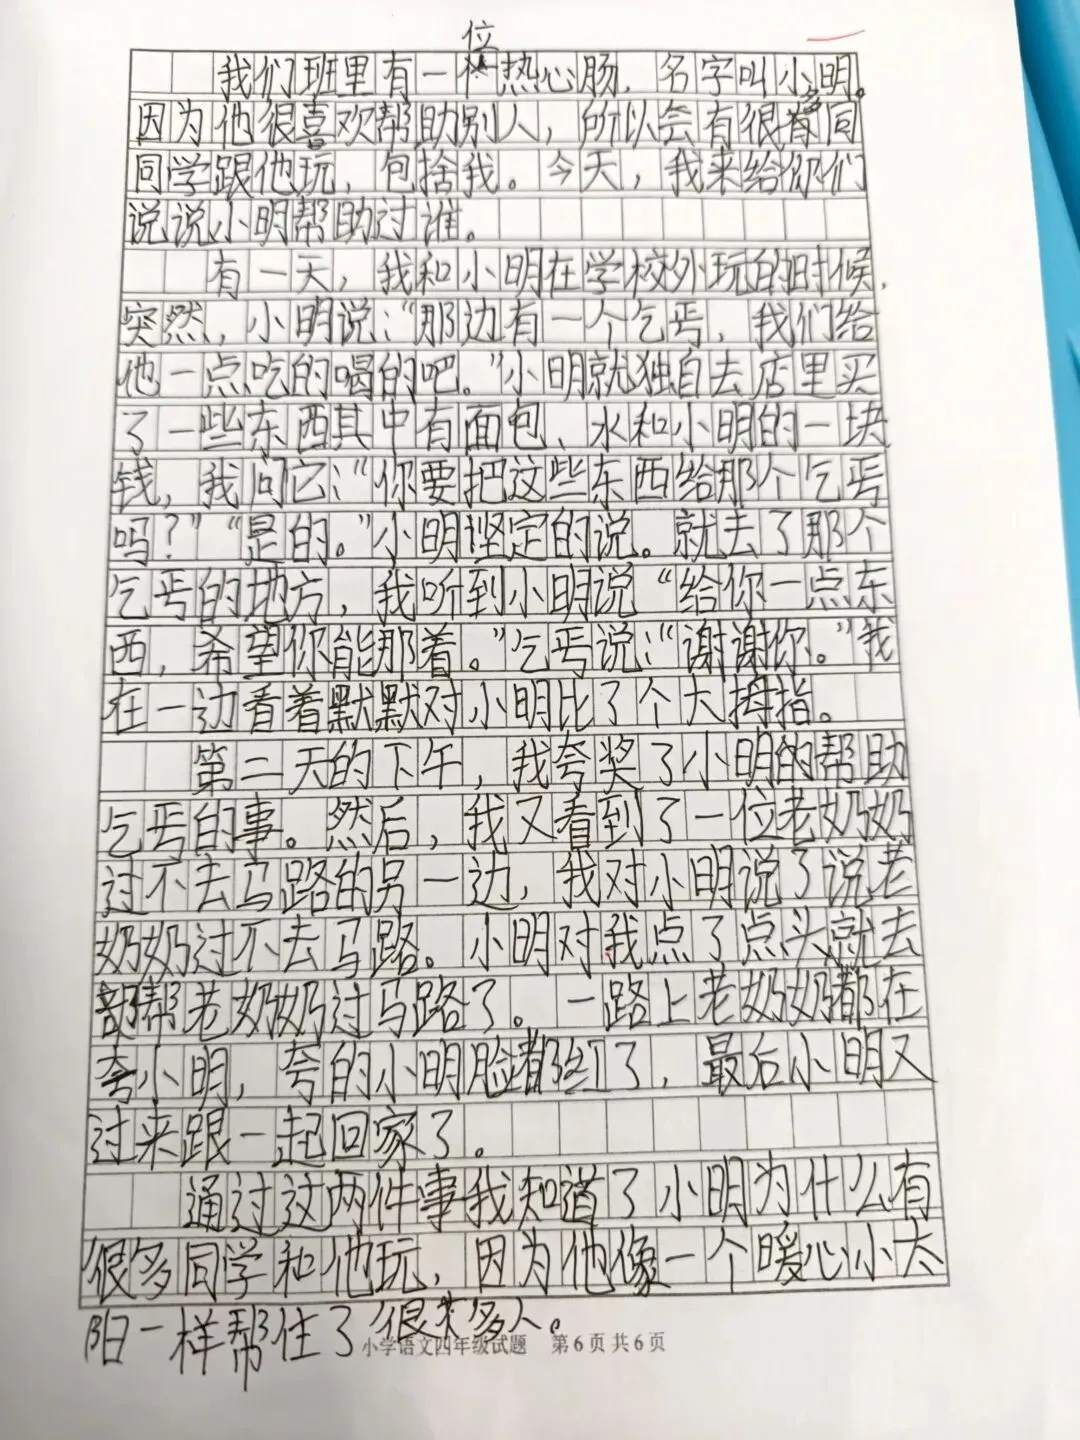 我们班里有一位热心肠，名字叫小明。
因为他很喜欢帮助别人，所以会有很多同
同学跟他玩，包捨我。今天，我来给你们
说说小明帮助过谁。
有一天，我和小明在学校外玩的时候，
突然，小明说：“那边有一个乞丐，我们给
他一点吃的喝的吧。”小明就独自去店里买
了一些东西其中有面包、水和小明的一块
钱，我问它：“你要把这些东西给那个乞丐
吗？”“是的。”小明坚定的说。就去了那个
乞丐的地方，我听到小明说“给你一点东
西，希望你能那着。”乞丐说：“谢谢你。”我
在一边看着默默对小明比了个大拇指。
第二天的下午，我夸奖了小明的帮助
乞丐的事。然后，我又看到了一位老奶奶
过不去马路的另一边，我对小明说了说老
奶奶过不去马路。小明对我点了点头就去
帮老奶奶过马路了。一路上老奶奶都在
夸小明，夸的小明脸都红了，最后小明又
过来跟一起回家了。
通过这两件事我知道了小明为什么有
很多同学和他玩，因为他像一个暖心小太
阳一样帮住了很多人。
小学语文四年级试题 第6页共6页